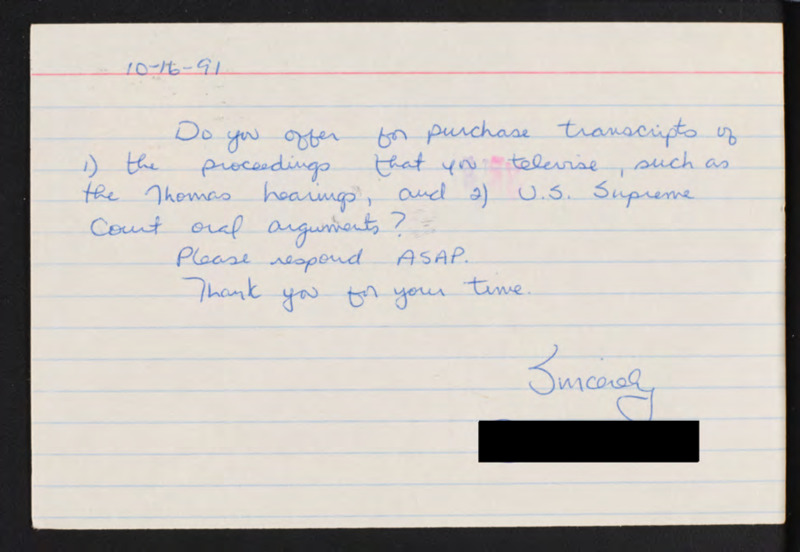 10-16-91
Do you offer for purchase transcripts of
1) the proceedings that you televise, such as
the Thomas hearings, and 2) U.S. Supreme
Court oral arguments?
Please respond ASAP.
Thank you for your time.
Sincerely